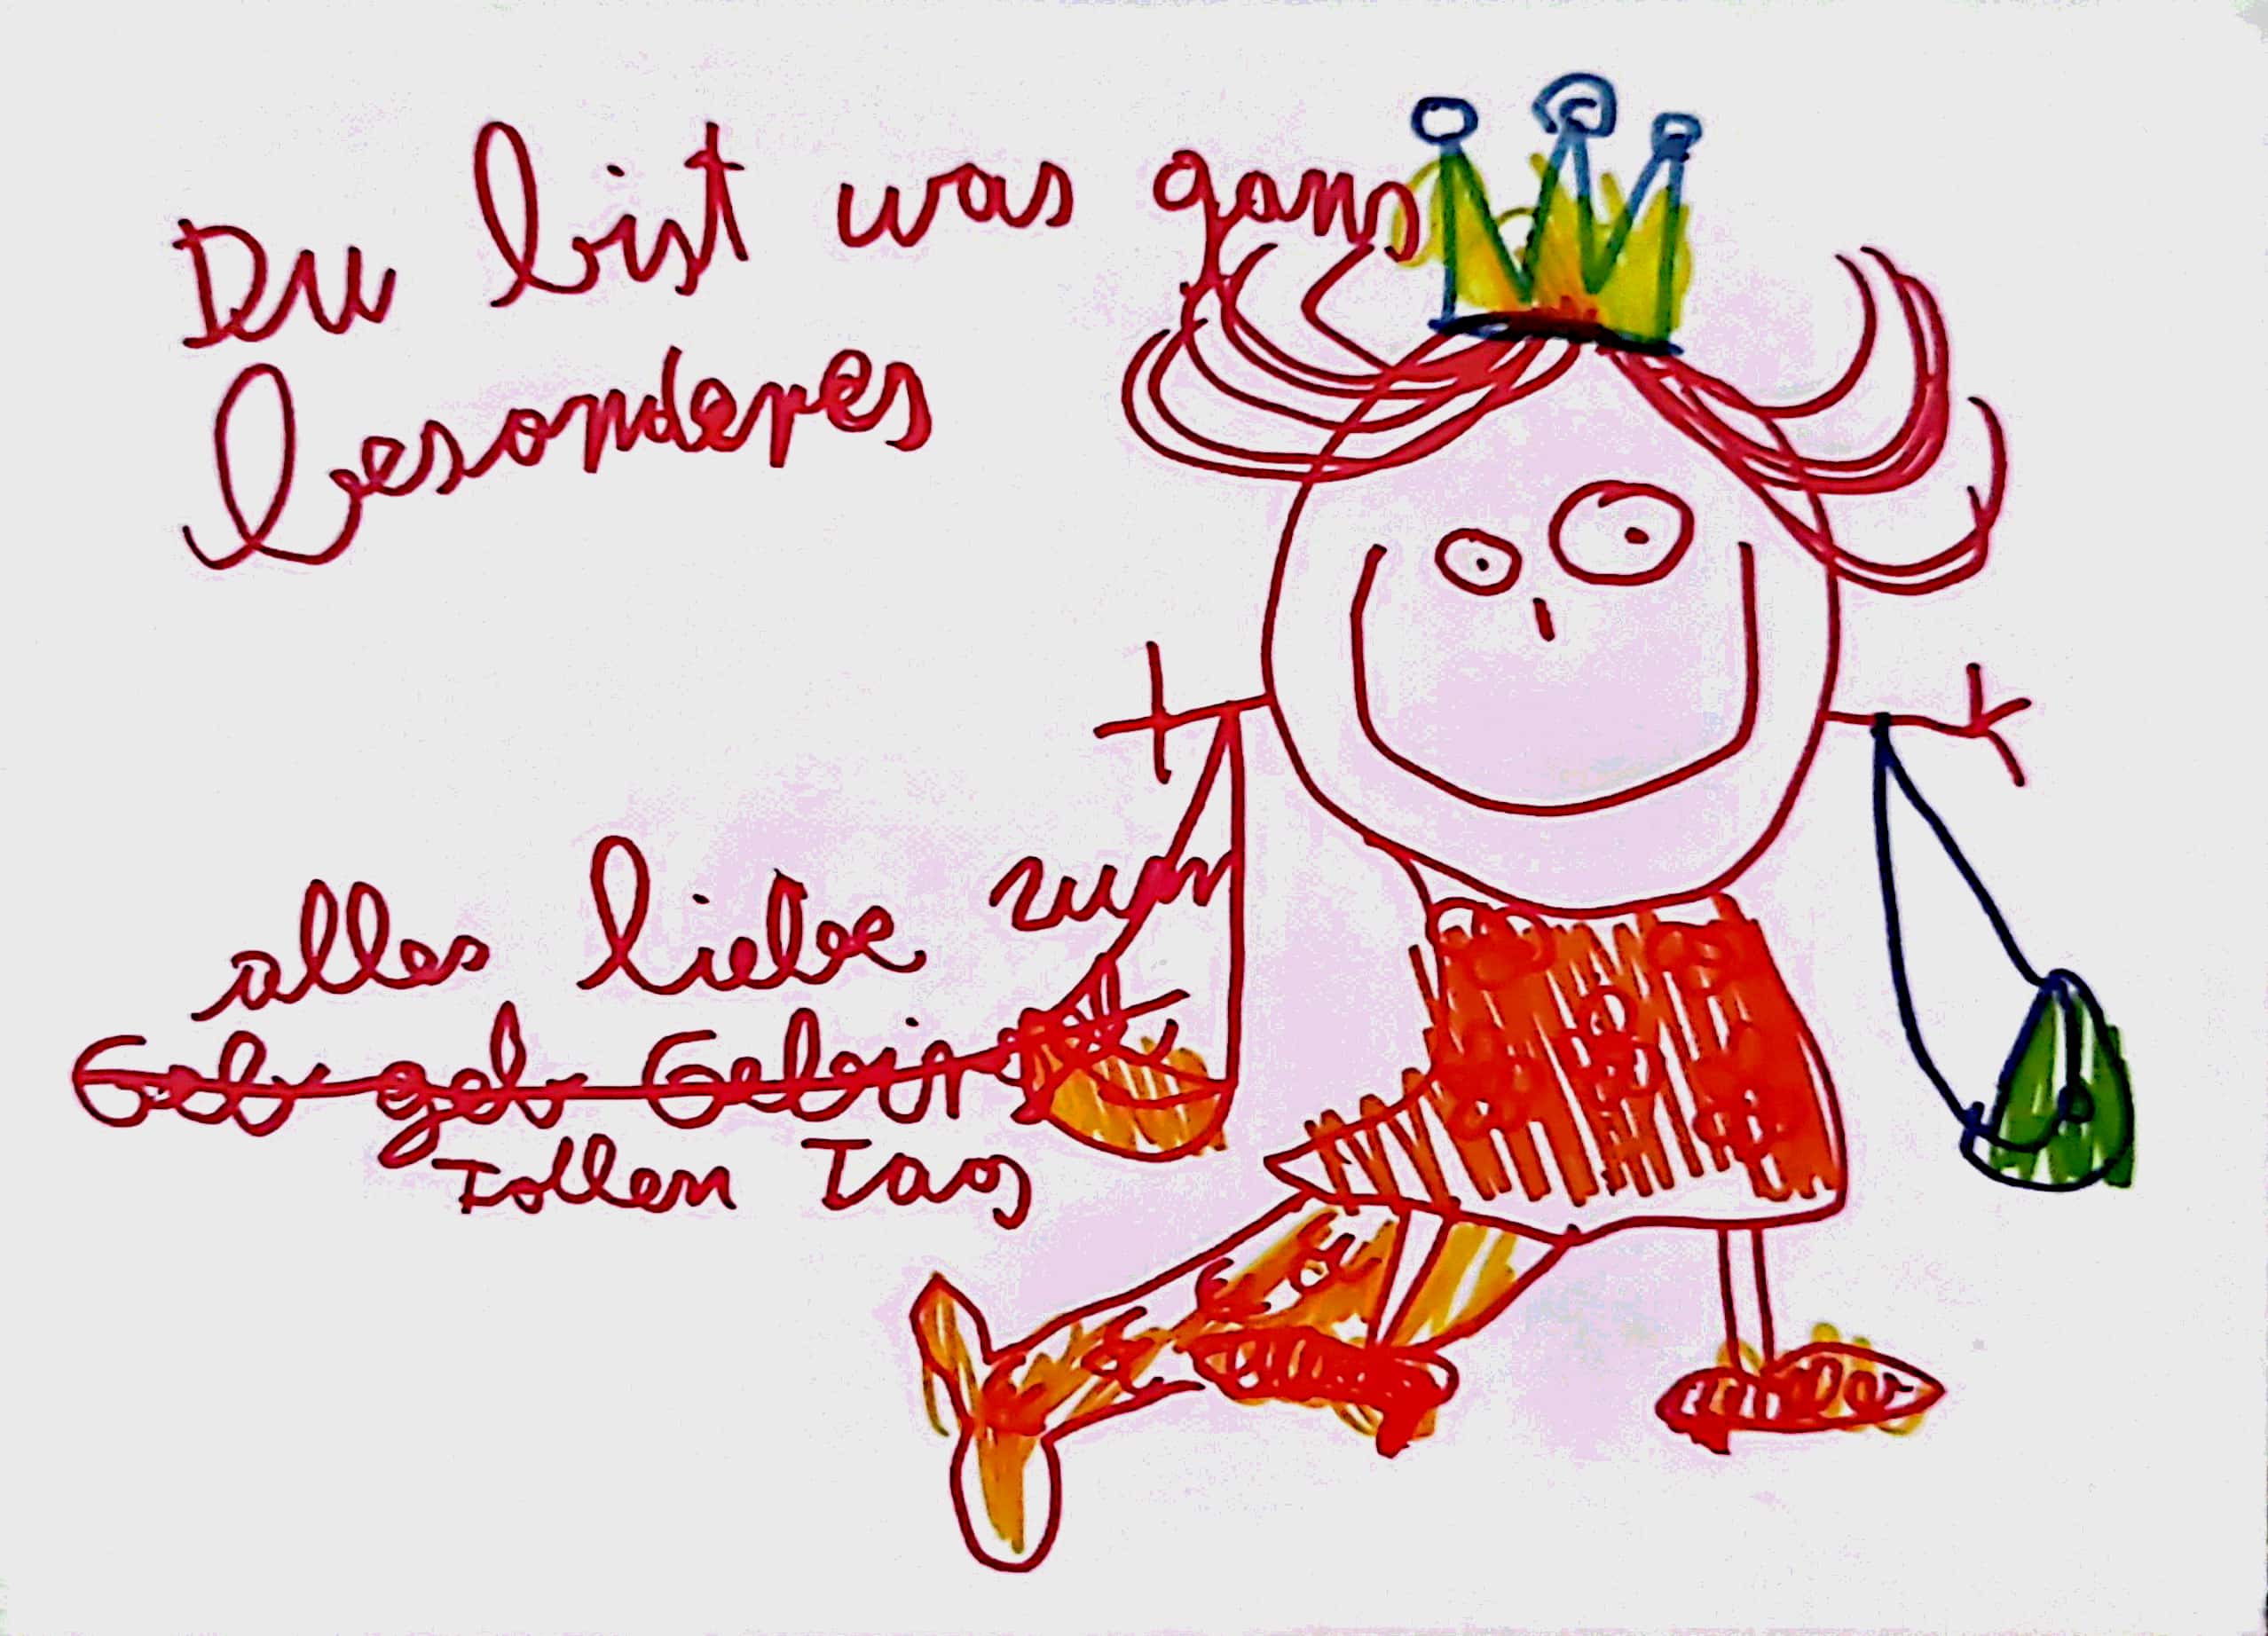 Du bist was gans
besonderes
alles liebe zum
Geb geb Gebürt
Tollen Tag